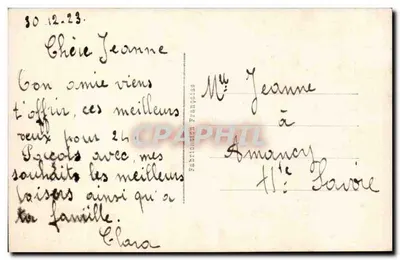 30.12.23.
Chère Jeanne
Ton amie viens
t'offrir, ces meilleurs
veux pour 24
Reçois avec, mes
souhaits les meilleurs
baisers ainsi qu'a
ta famille.
Clara
Fabrication Française
Mlle Jeanne
à
Amancy
Hte Savoie
CPAPHIL.COM